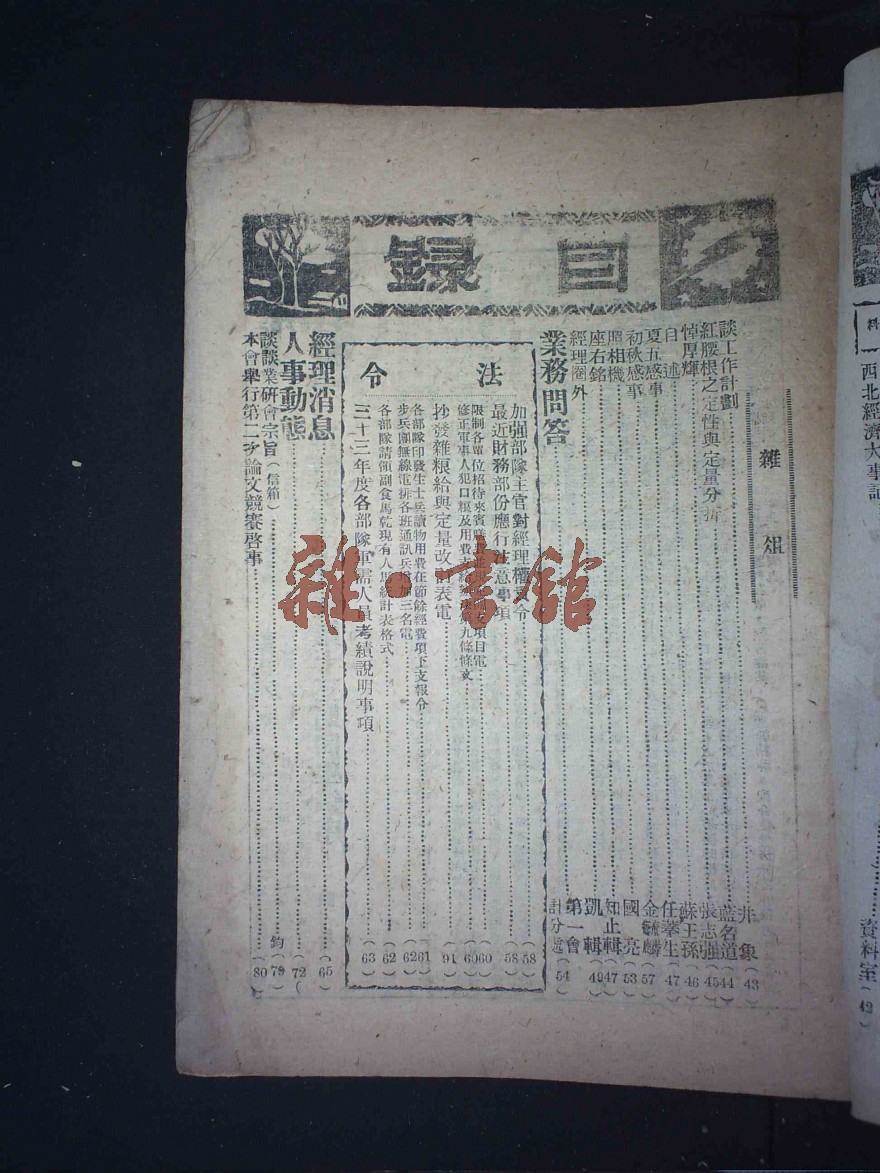 目錄
雜俎
談工作計劃 井象(43)
紅腰根之定性與定量分析 藍名道(44)
悼厚輝 張志強(45)
自述 蘇王孫(46)
夏五感事 任莘生(47)
初秋感事 金麟(57)
照相機 國亮(53)
座右銘 知止輯(47)
經理圈外 凱輯(49)
業務問答 第一會計分處(54)
法令
加强部隊主官對經理權責令(58)
最近財務部份應行注意事項(58)
限制各單位招待來賓膳食項目電(60)
修正軍事人犯口糧及用費第九條條文(60)
抄發雜粮給與定量改訂表電(91)
各部隊印發生士兵讀物用費在節餘經費項下支報令(61)
步兵團無線電排各班通訊兵增加三名電(62)
各部隊請領副食馬乾現有人馬統計表格式(62)
三十三年度各部隊軍需人員考績說明事項(63)
經理消息(65)
人事動態(72)
談談業研會宗旨(信箱) 鈞(79)
本會舉行第二次論文競賽啓事(80)
西北經濟大事記 資料室(42)
雜·書館